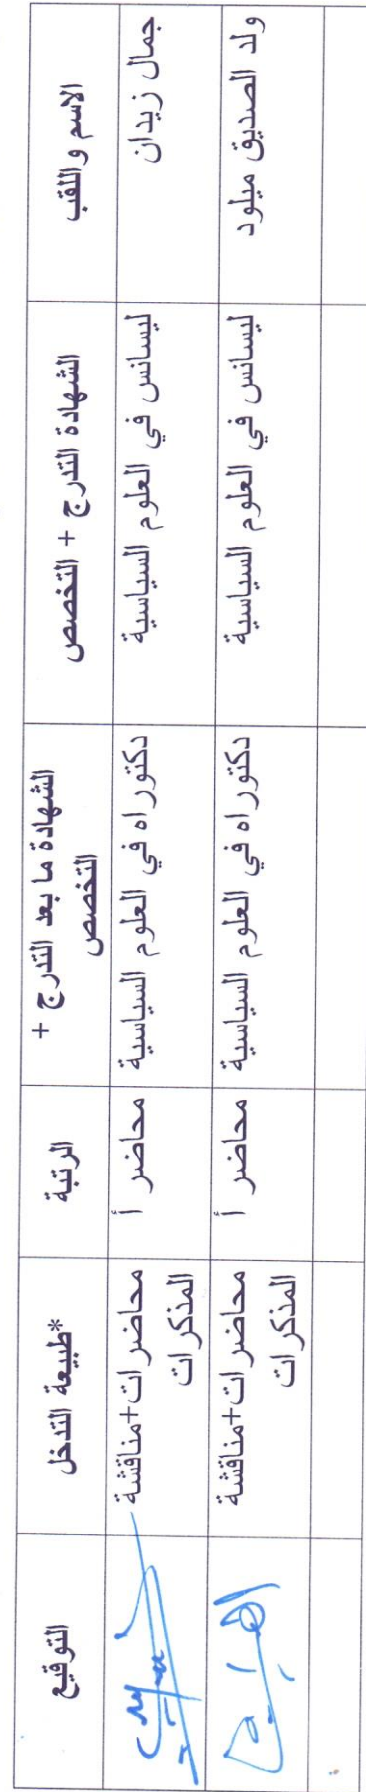 الاسم واللقب
الشهادة التدرج + التخصص
الشهادة ما بعد التدرج +
التخصص
الرتبة
*طبيعة التدخل
التوقيع
جمال زيدان
ليسانس في العلوم السياسية
دكتوراه في العلوم السياسية
محاضر أ
محاضرات+مناقشة
المذكرات
ولد الصديق ميلود
ليسانس في العلوم السياسية
دكتوراه في العلوم السياسية
محاضر أ
محاضرات+مناقشة
المذكرات